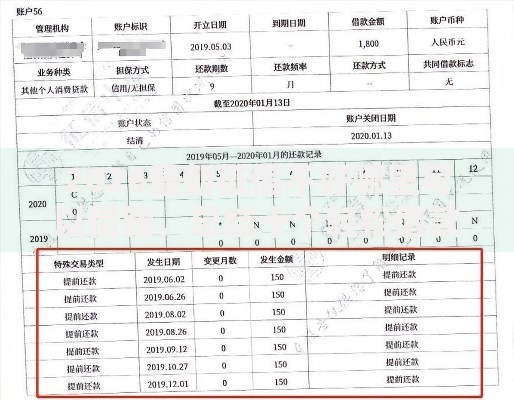 账户56
管理机构 账户标识 开立日期 到期日期 借款金额 账户币种
2019.05.03 -- 1,800 人民币元
业务种类 担保方式 还款期数 还款频率 还款方式 共同借款标志
其他个人消费贷款 信用/无担保 9 月 -- 无
截至2020年01月13日
账户状态 账户关闭日期
结清 2020.01.13
2019年05月—2020年01月的还款记录
1 2 3 4 5 6 7 8 9 10 11 12
2020 C
0
2019 * N N N
特殊交易类型 发生日期 变更月数 发生金额 明细记录
提前还款 2019.06.02 0 150 提前还款
提前还款 2019.06.26 0 150 提前还款
提前还款 2019.08.02 0 150 提前还款
提前还款 2019.08.26 0 150 提前还款
提前还款 2019.09.12 0 150 提前还款
提前还款 2019.10.27 0 150 提前还款
提前还款 2019.12.01 0 150 提前还款